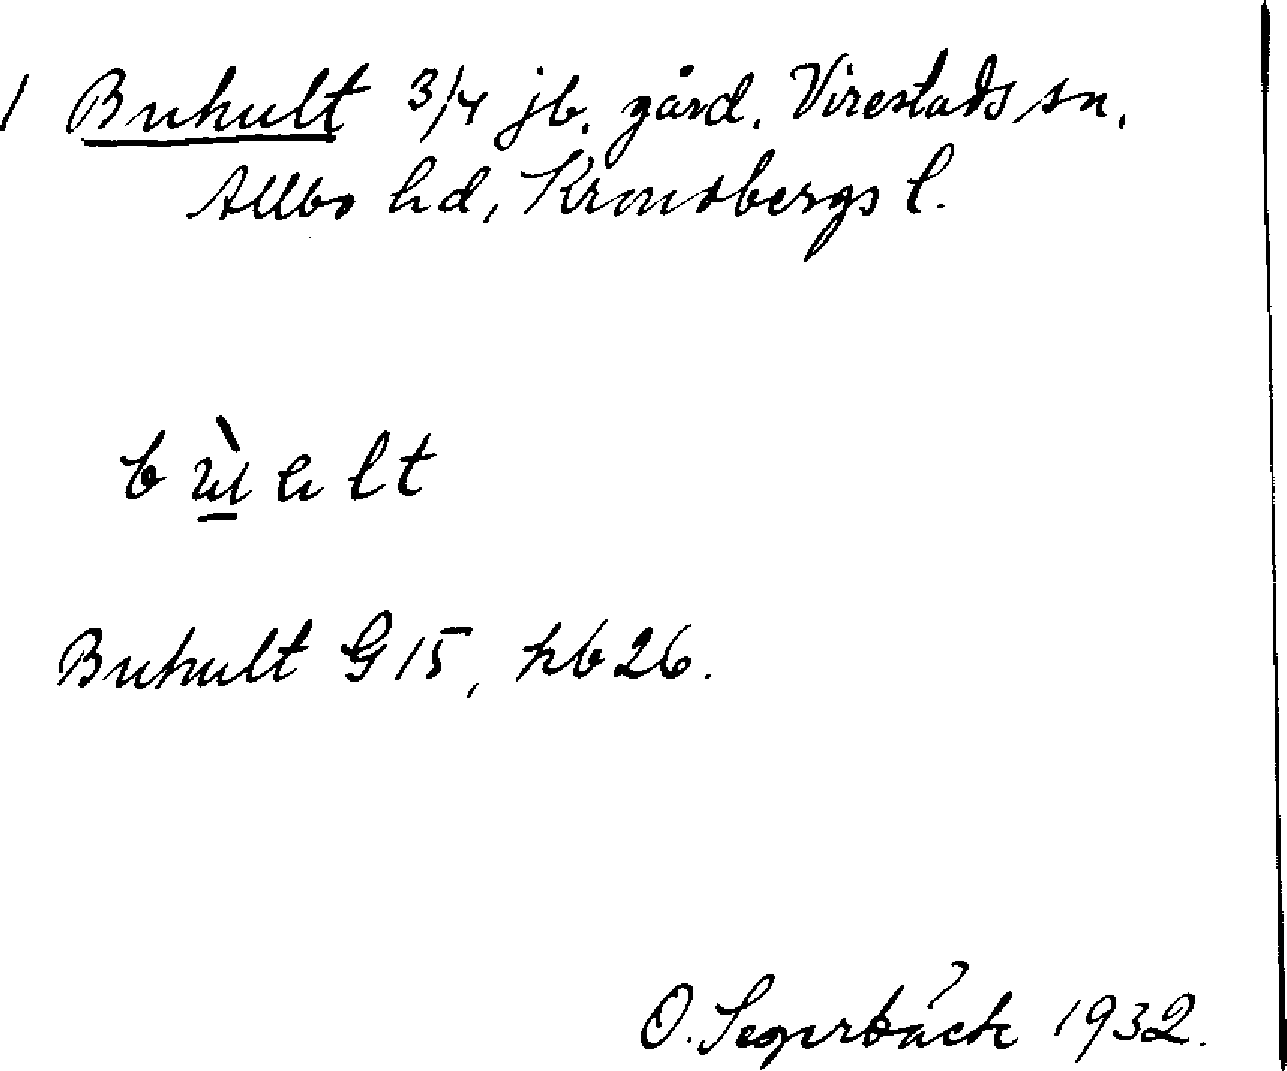 1 Buhult 3/4 jb. gård. Virestads sn.
Allbo hd, Kronobergs l.
Buhult G 15, hb 26.
O. Segerbäck 1932.